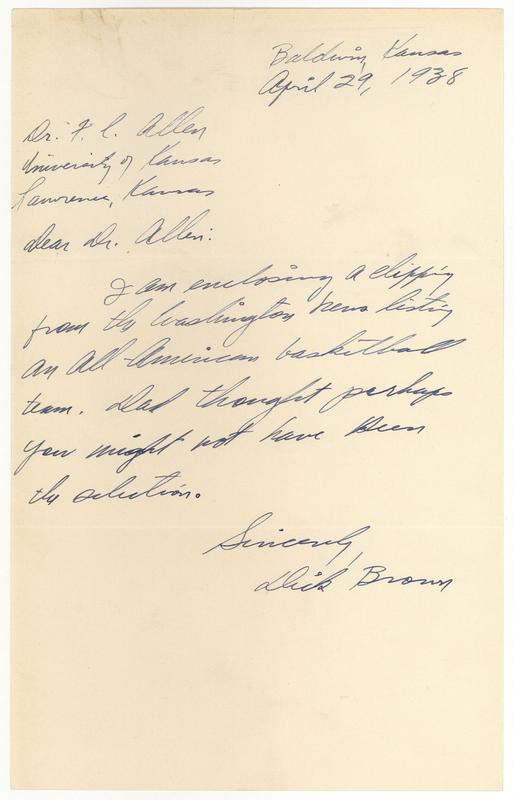 Baldwin, Kansas
April 29, 1938
Dr. F. C. Allen
University of Kansas
Lawrence, Kansas
Dear Dr. Allen:
I am enclosing a clipping
from the Washington News listing
an All-American basketball
team. Dad thought perhaps
you might not have seen
the selection.
Sincerely,
Dick Brown